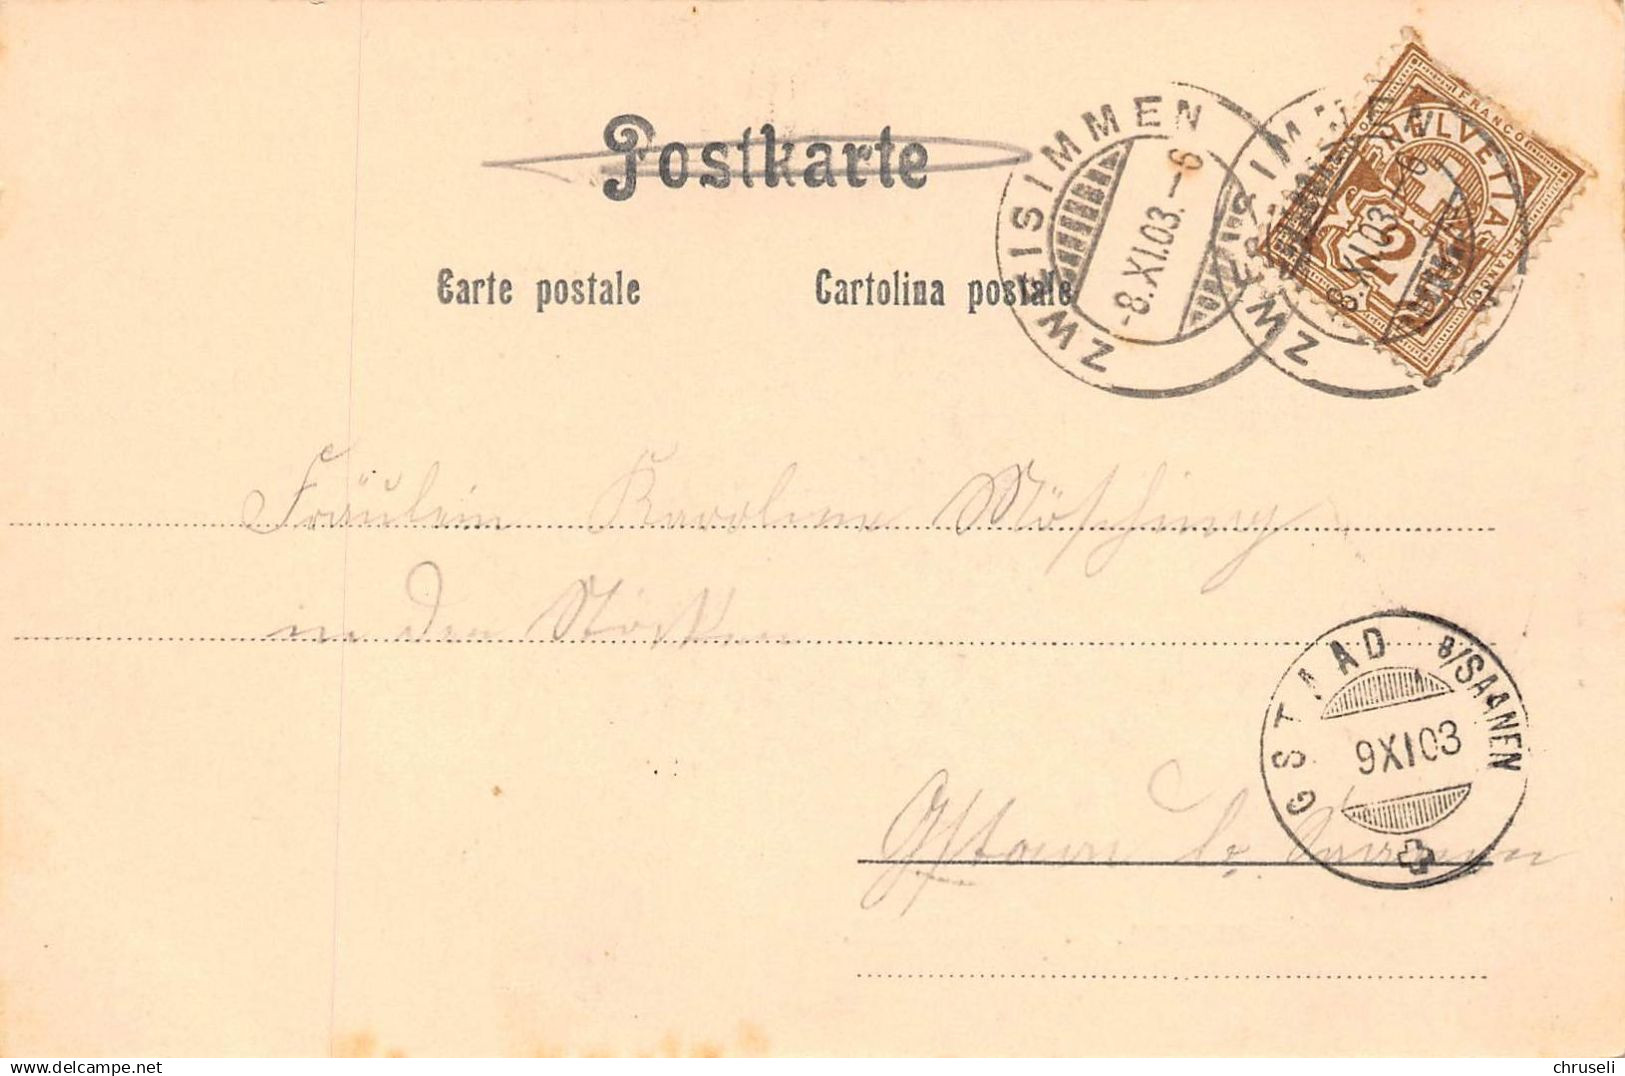 Postkarte
Carte postale
Cartolina postale
ZWEISIMMEN
-8.XI.03.-6
ZWEISIMMEN
-8.XI.03.-6
FRANCO
HELVETIA
2
FRANCO
Fräulein Karoline Mösching
in den Stöcken
Gstaad b. Saanen
GSTAAD B/SAANEN
9XI03
chruseli